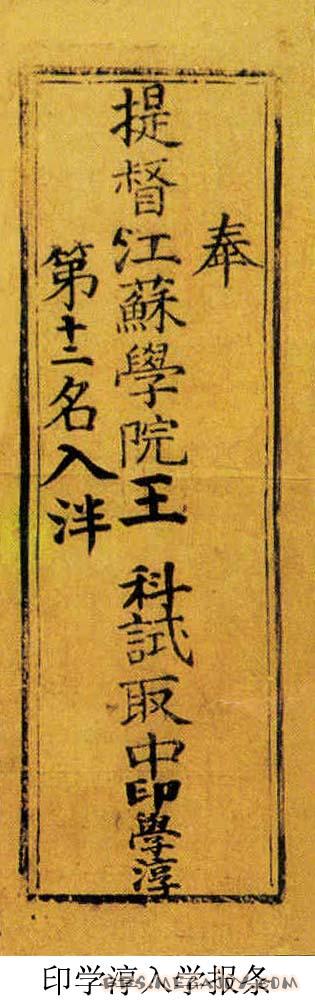 奉
提督江蘇學院王 科試取中印學淳
第十二名入泮
印学淳入学报条
BBS.MEGAJOY.COM